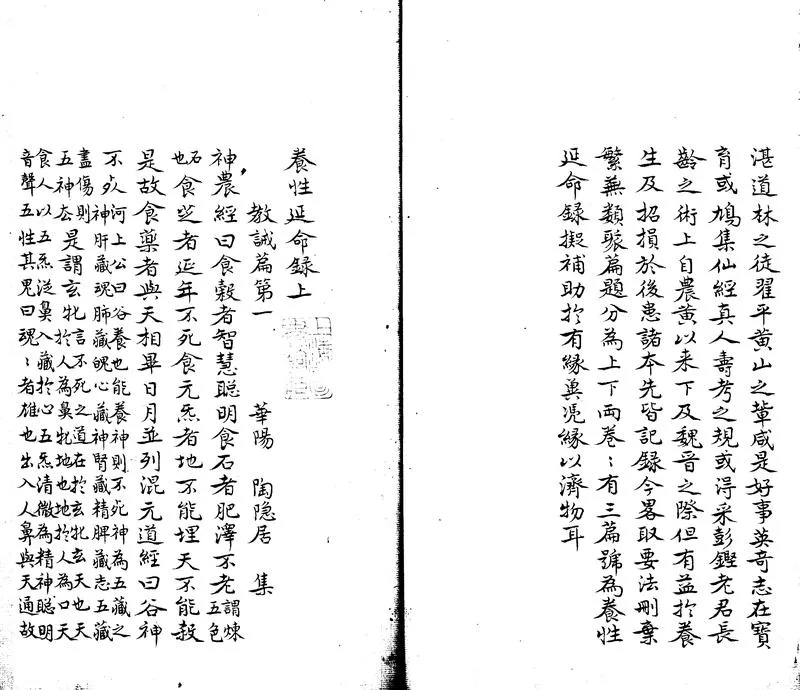 湛道林之徒翟平黄山之輩咸是好事英竒志在寳
育或鳩集仙經真人壽考之規或得采彭鏗老君長
齡之術上自農黄以来下及魏晋之際但有益扵養
生及招損扵後患諸本先皆記録今畧取要法刪棄
繁蕪類聚篇題分為上下兩巻：有三篇號為養性
延命録擬補助扵有縁冀凴縁以濟物耳
養性延命録上
教誡篇第一 華陽 陶隐居 集
神農經曰食穀者智慧聡明食石者肥澤不老謂煉五色
石也食芝者延年不死食元炁者地不能埋天不能殺
是故食藥者與天相畢日月並列混元道經曰谷神
不死河上公曰谷養也能養神則不死神為五藏之
神肝藏魂肺藏魄心藏神腎藏精脾藏志五藏
盡傷則五神去是謂玄牝言不死之道在扵玄牝玄天也天
扵人為鼻牝地也地扵人為口天
食人以五炁從鼻入藏扵心五炁清微為精神聡明
音聲五性其鬼曰魂：者雄也出入人鼻與天通故